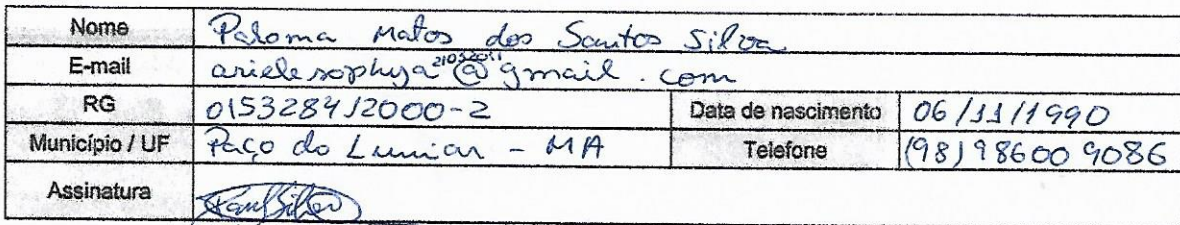 Nome Paloma Matos dos Santos Silva
E-mail arielesophya21052011@gmail.com
RG 015328412000-2 Data de nascimento 06/11/1990
Município / UF Paço do Lumiar - MA Telefone (98) 98600 9086
Assinatura